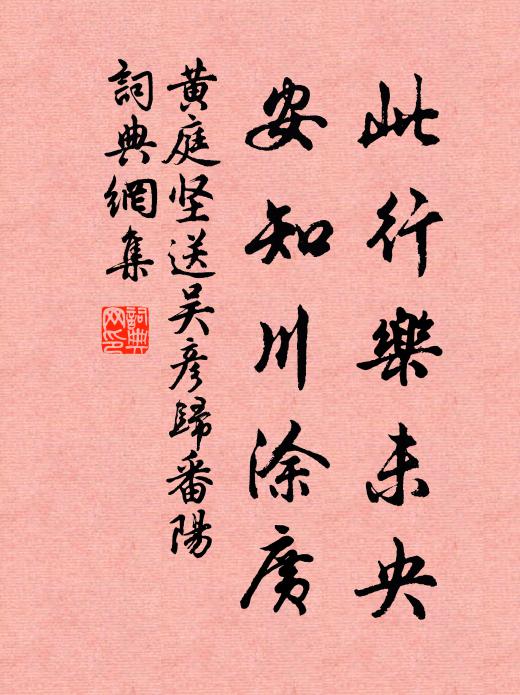 此行樂未央
安知川涂廣
黄庭坚送吴彦歸番陽
詞典網集
詞典網印